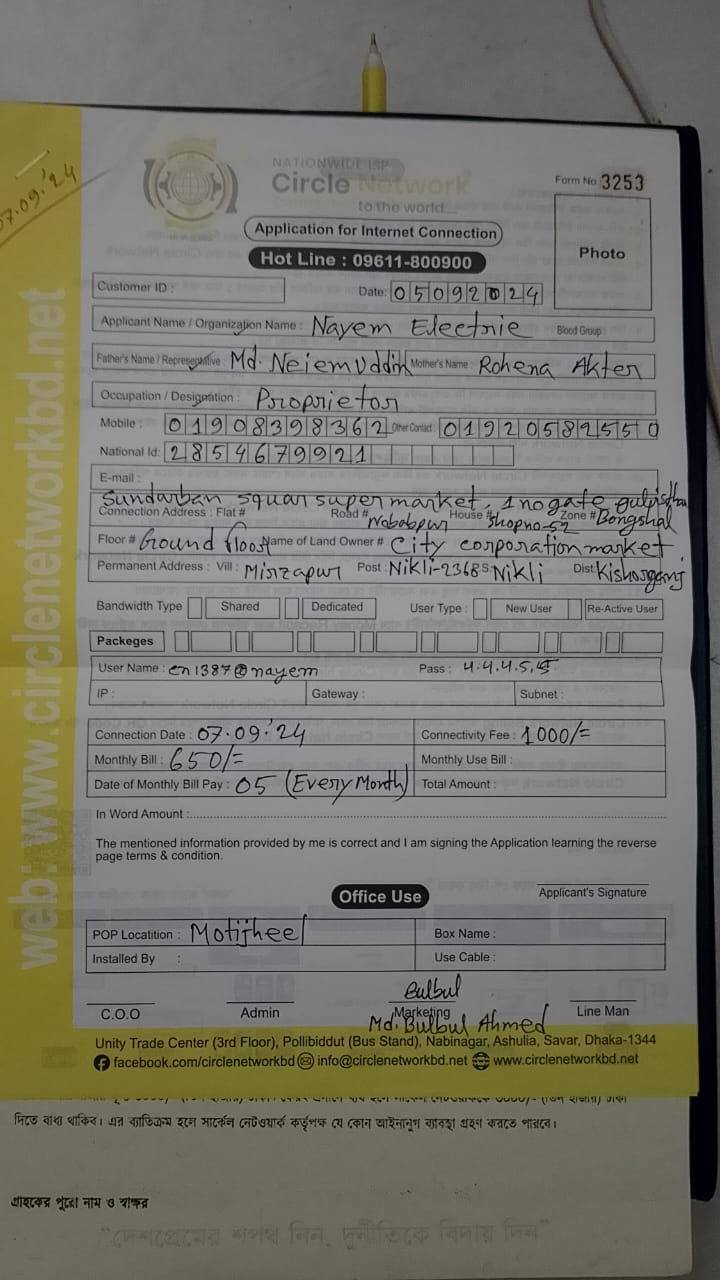 07.09.'24
NATIONWIDE ISP
Circle Network
to the world...
Form No 3253
Application for Internet Connection
Hot Line : 09611-800900
Photo
Customer ID :
Date: 05092024
Applicant Name / Organization Name : Nayem Electric Blood Group :
Father's Name / Represeptive : Md. Neiemuddin Mother's Name : Rohena Akter
Occupation / Designation : Proprietor
Mobile : 01908398362 Other Contact 01920589550
National Id: 2854679921
E-mail :
Sundarban squar super market, 1 no gate gulisthan
Connection Address : Flat # Road # Nobabpur House # Shop no-52 Zone # Bongshal
Floor # Ground floor Name of Land Owner # City corporation market
Permanent Address : Vill : Mirzapur Post : Nikli-2368 S Nikli Dist: Kishorganj
Bandwidth Type Shared Dedicated User Type : New User Re-Active User
Packeges
User Name : cn1387@nayem Pass : 4.4.4.5.5
IP : Gateway : Subnet :
Connection Date : 07.09.'24 Connectivity Fee : 1000/=
Monthly Bill : 650/= Monthly Use Bill :
Date of Monthly Bill Pay : 05 (Every Month) Total Amount :
In Word Amount :
The mentioned information provided by me is correct and I am signing the Application learning the reverse
page terms & condition.
Office Use
Applicant's Signature
POP Locatition : Motijheel Box Name :
Installed By : Use Cable :
Bulbul
C.O.O Admin Marketing Line Man
Md. Bulbul Ahmed
Unity Trade Center (3rd Floor), Pollibiddut (Bus Stand), Nabinagar, Ashulia, Savar, Dhaka-1344
facebook.com/circlenetworkbd info@circlenetworkbd.net www.circlenetworkbd.net
web: www.circlenetworkbd.net
দিতে বাধ্য থাকিব। এর ব্যতিক্রম হলে সার্কেল নেটওয়ার্ক কর্তৃপক্ষ যে কোন আইনানুগ ব্যাবস্থা গ্রহণ করতে পারবে।
গ্রাহকের পুরো নাম ও স্বাক্ষর
"দেশপ্রেমের শপথ নিন, দুর্নীতিকে বিদায় দিন"